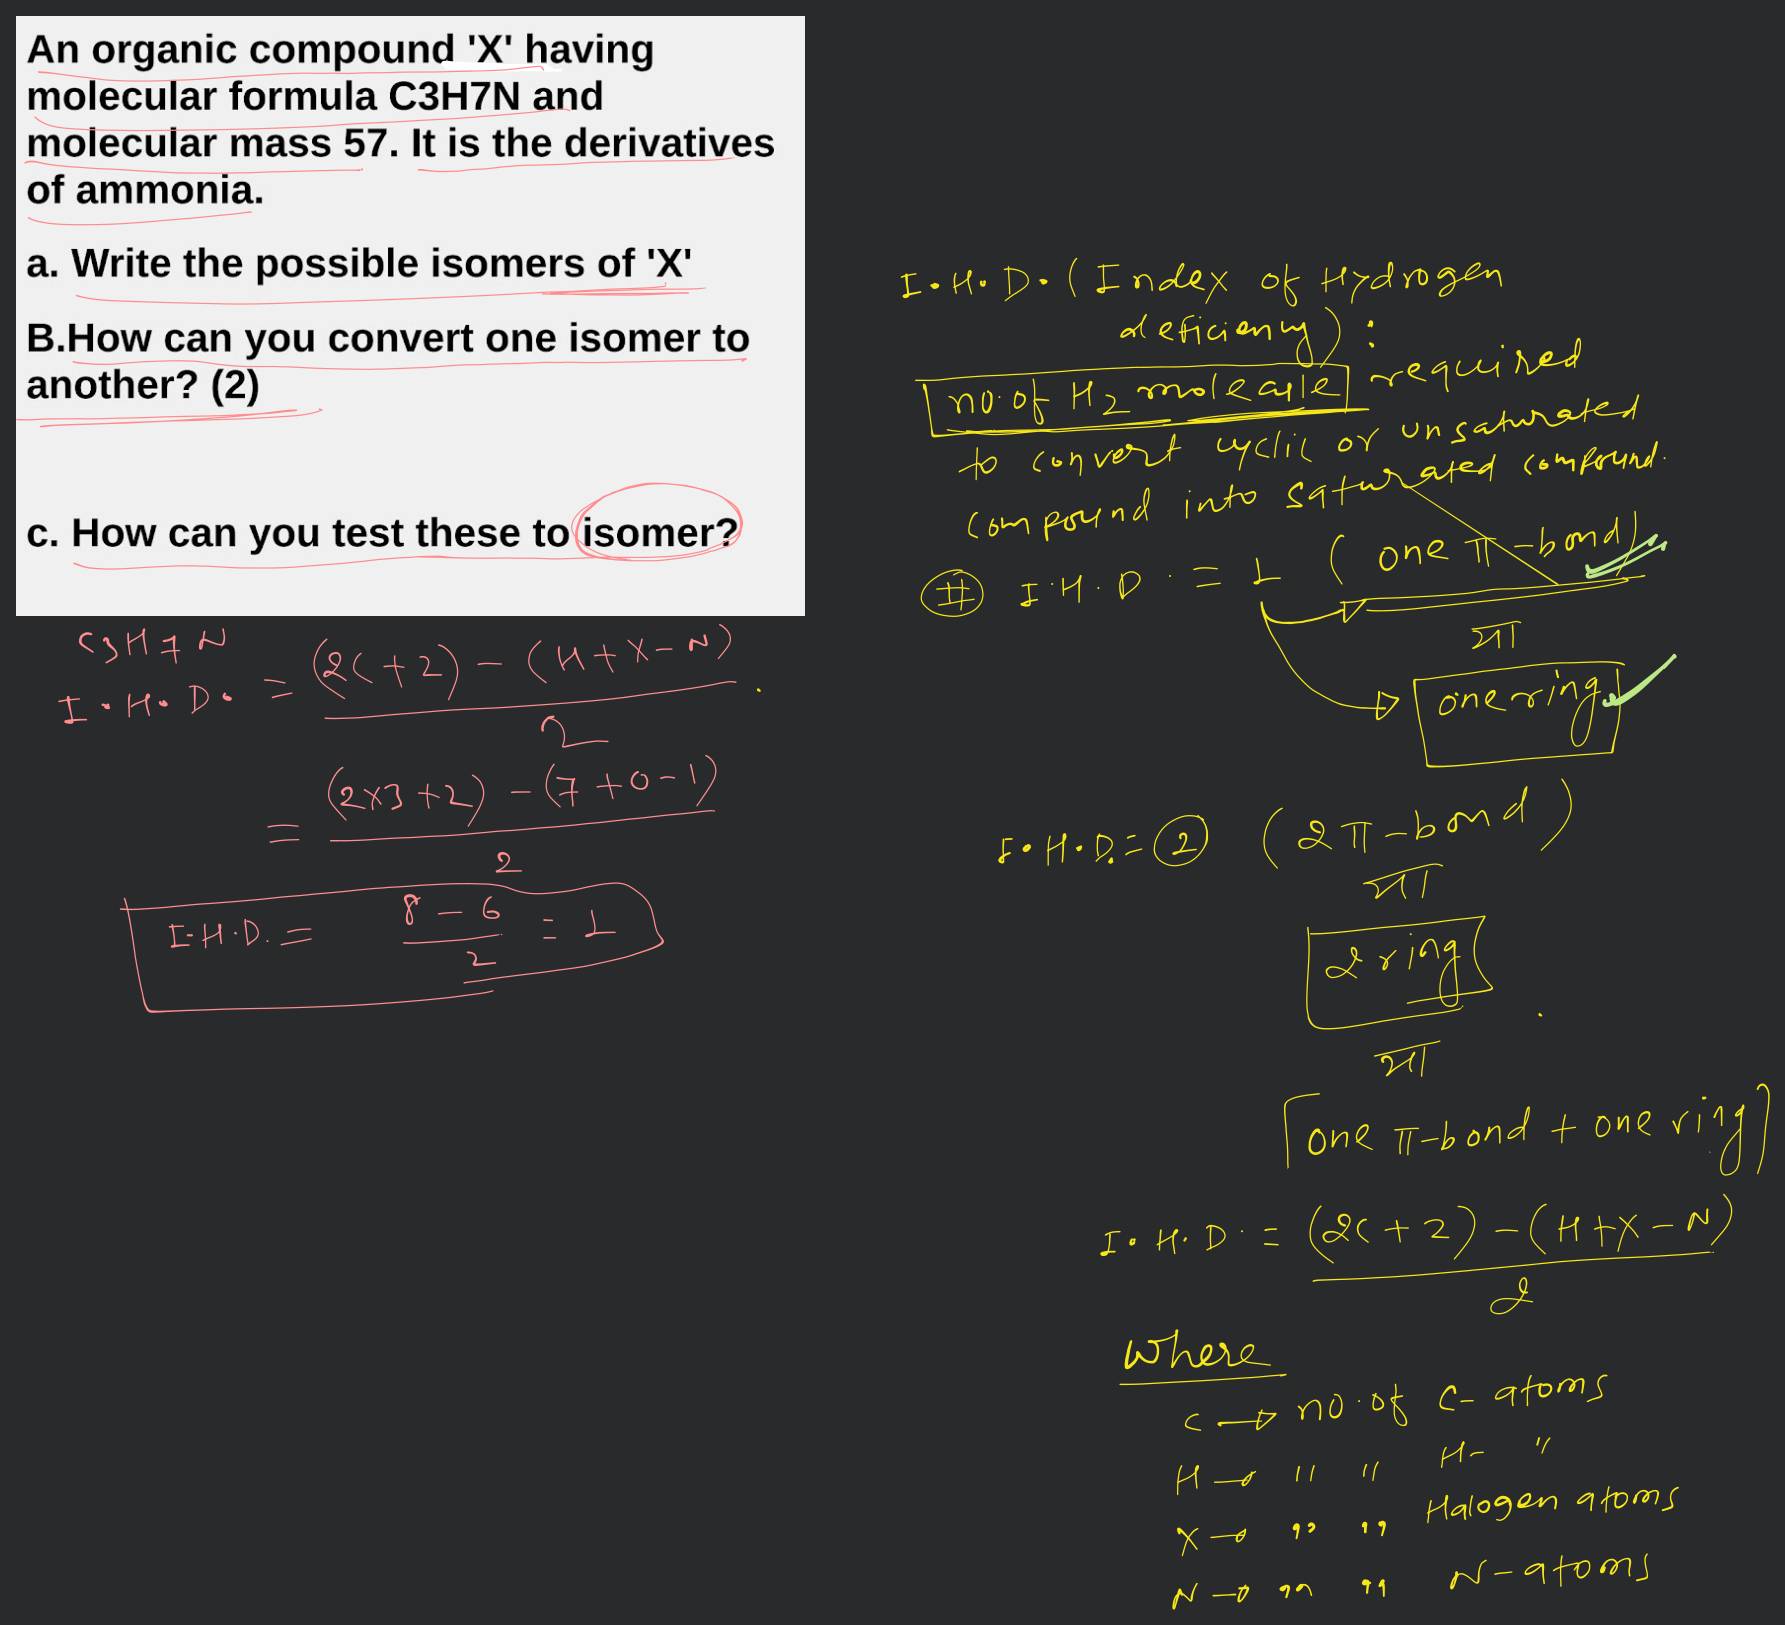 An organic compound 'X' having
molecular formula C3H7N and
molecular mass 57. It is the derivatives
of ammonia.
a. Write the possible isomers of 'X'
B.How can you convert one isomer to
another? (2)
c. How can you test these to isomer?
C3H7N
I.H.D. = (2C+2) - (H+X-N) / 2
= (2x3+2) - (7+0-1) / 2
I.H.D. = 8-6 / 2 = 1
I.H.D. (Index of Hydrogen
deficiency) :
no. of H2 molecule required
to convert cyclic or unsaturated
compound into saturated compound.
# I.H.D. = 1 (one π-bond)
या
one ring
I.H.D. = 2 (2π-bond)
या
2 ring
या
[one π-bond + one ring]
I.H.D. = (2C+2) - (H+X-N) / 2
Where
C → no. of C-atoms
H → " " H- "
X → " " Halogen atoms
N → " " N-atoms